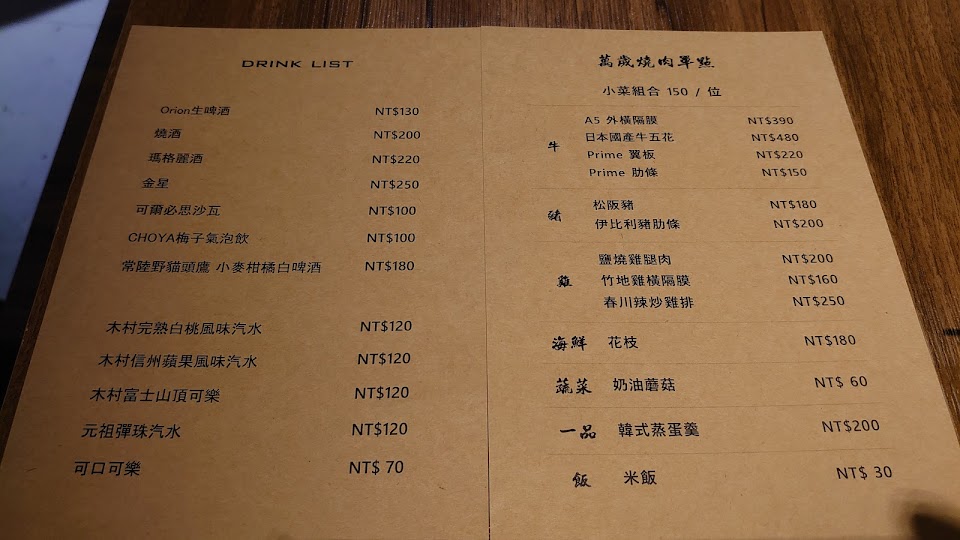 DRINK LIST
Orion生啤酒 NT$130
燒酒 NT$200
瑪格麗酒 NT$220
金星 NT$250
可爾必思沙瓦 NT$100
CHOYA梅子氣泡飲 NT$100
常陸野貓頭鷹 小麥柑橘白啤酒 NT$180
木村完熟白桃風味汽水 NT$120
木村信州蘋果風味汽水 NT$120
木村富士山頂可樂 NT$120
元祖彈珠汽水 NT$120
可口可樂 NT$ 70
萬歲燒肉單點
小菜組合 150 / 位
牛
A5 外橫隔膜 NT$390
日本國產牛五花 NT$480
Prime 翼板 NT$220
Prime 肋條 NT$150
豬
松阪豬 NT$180
伊比利豬肋條 NT$200
雞
鹽燒雞腿肉 NT$200
竹地雞橫隔膜 NT$160
春川辣炒雞排 NT$250
海鮮 花枝 NT$180
蔬菜 奶油蘑菇 NT$ 60
一品 韓式蒸蛋羹 NT$200
飯 米飯 NT$ 30